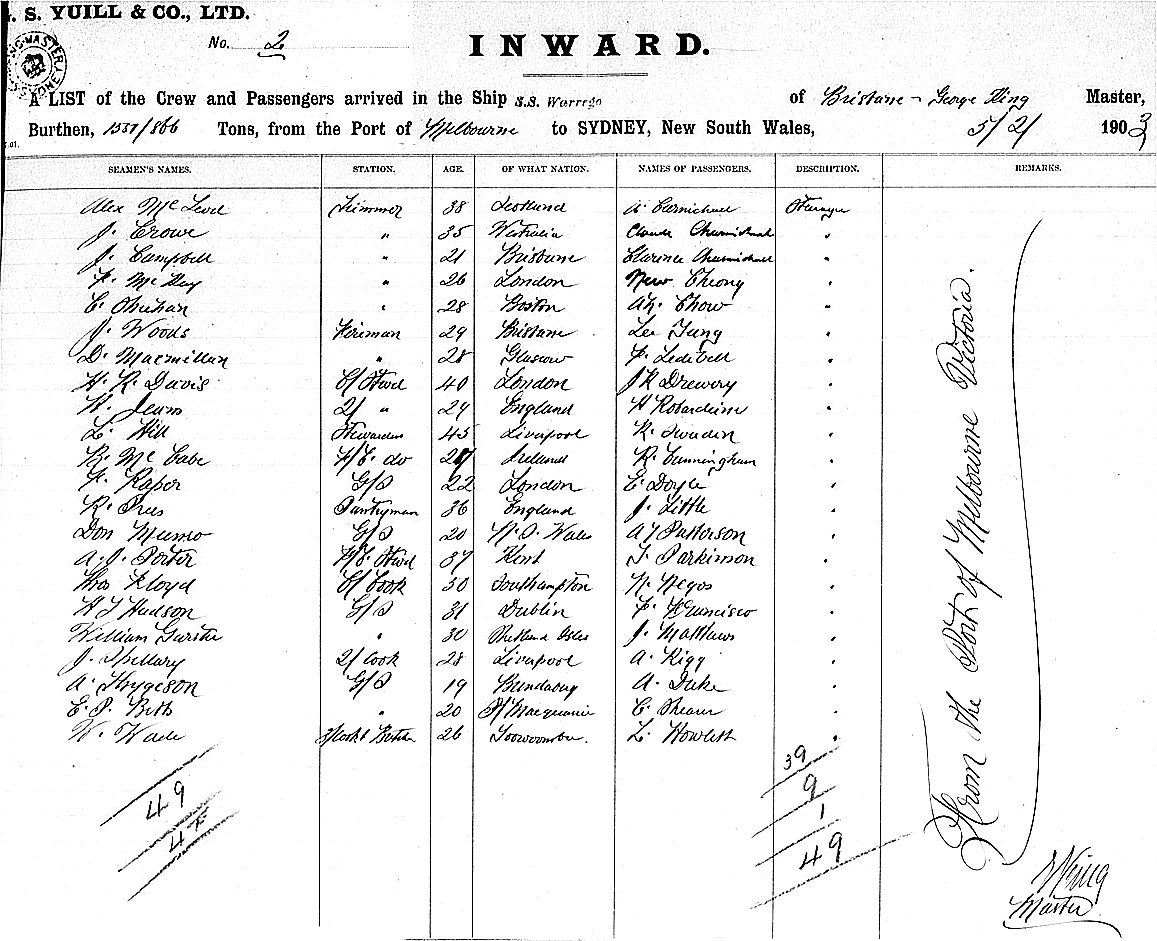 . S. YUILL & CO., LTD.
No. 2
INWARD.
A LIST of the Crew and Passengers arrived in the Ship S.S. Warrego of Brisbane - George King Master,
Burthen, 1537/866 Tons, from the Port of Melbourne to SYDNEY, New South Wales, 5/2/ 1903
SEAMEN'S NAMES. STATION. AGE. OF WHAT NATION. NAMES OF PASSENGERS. DESCRIPTION. REMARKS.
Alex McLeod Trimmer 38 Scotland A. Carmichael Steerage
J. Crowe " 35 Westralia Claude "
J. Campbell " 21 Brisbane Clarence "
" 26 London New Cheong "
" 28 Boston Ah. Chow "
J. Woods Fireman 29 Brisbane Lee Fung "
D. Macmillan " 28 Glasow "
H. R. Davis C/ Stwd 40 London J R Drewery "
2/ " 29 England "
L. Hill Stewardess 45 Liverpool "
R. McCabe F/C. do Ireland R. Cunningham "
F. Raper G/S 22 London E. Doyle "
Pantryman 36 England J. Little "
Don Munro G/S 20 N. S. Wales A J Patterson "
A. J. Porter F/C. Stwd 37 Kent T. Parkinson "
Floyd C/ Cook 30 Southampton "
H J Hudson G/S 31 Dublin F. Francisco "
William " 30 J. Matthews "
2/ Cook 28 Liverpool A. Rigg "
A. Thygeson G/S 19 A. Duke "
" 20 P/ Macquarie "
W. Wade 26 Toowoomba. L. Howlett "
39
9
1
49
49
From the Port of Melbourne Victoria.
King
Master